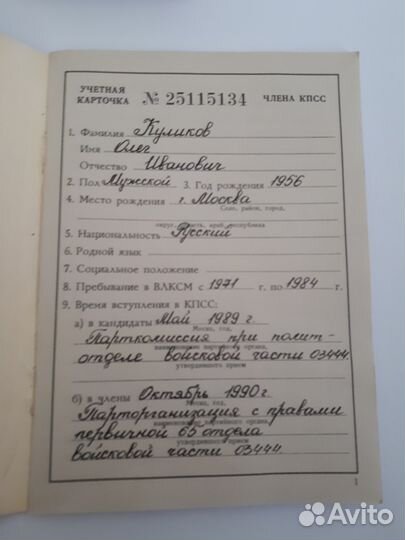 УЧЕТНАЯ КАРТОЧКА № 25115134 ЧЛЕНА КПСС
1. Фамилия Куликов
Имя Олег
Отчество Иванович
2. Пол Мужской 3. Год рождения 1956
4. Место рождения г. Москва
Село, район, город,
округ, область, край, республика
5. Национальность Русский
6. Родной язык
7. Социальное положение
8. Пребывание в ВЛКСМ с 1971 г. по 1984 г.
9. Время вступления в КПСС:
а) в кандидаты Май 1989 г.
Месяц, год,
Парткомиссия при полит-
наименование партийного органа,
отделе войсковой части 03444
утвердившего прием
б) в члены Октябрь 1990 г.
Месяц, год,
Парторганизация с правами
наименование партийного органа,
первичной 65 отдела
утвердившего прием
войсковой части 03444.
1
Avito